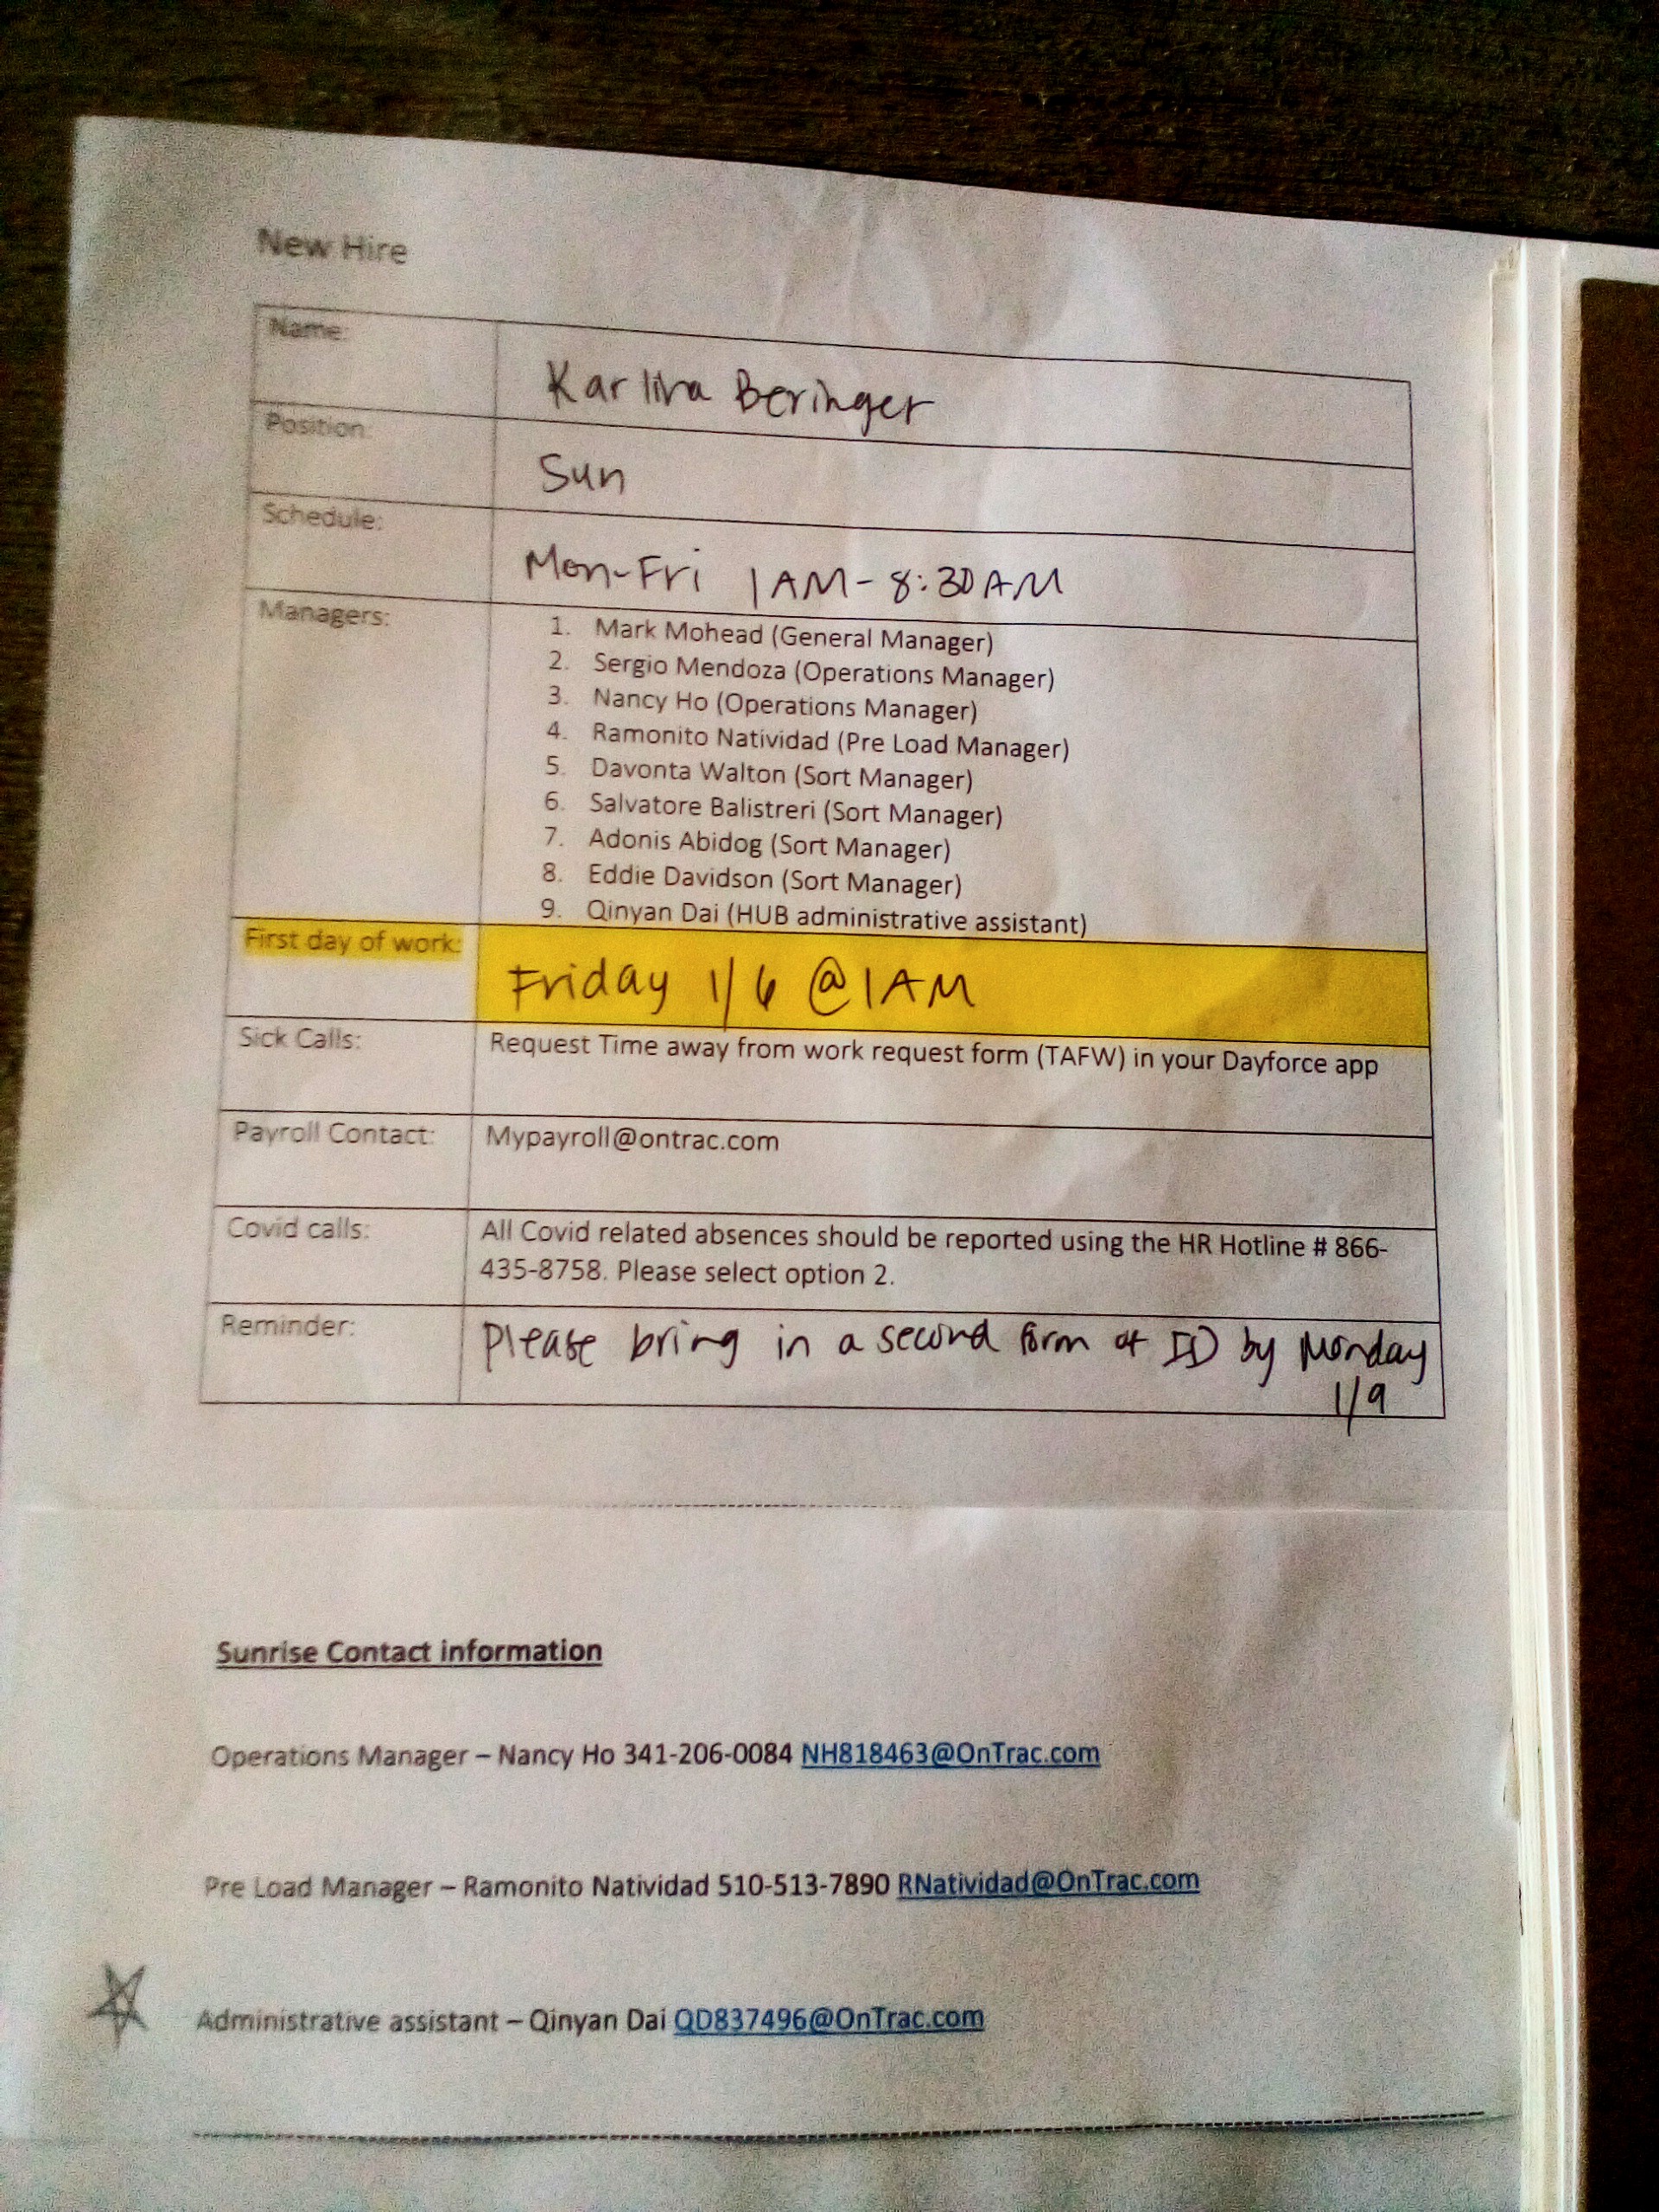 New Hire
Name:
Karlina Beringer
Position:
Sun
Schedule:
Mon-Fri 1AM-8:30AM
Managers:
1. Mark Mohead (General Manager)
2. Sergio Mendoza (Operations Manager)
3. Nancy Ho (Operations Manager)
4. Ramonito Natividad (Pre Load Manager)
5. Davonta Walton (Sort Manager)
6. Salvatore Balistreri (Sort Manager)
7. Adonis Abidog (Sort Manager)
8. Eddie Davidson (Sort Manager)
9. Qinyan Dai (HUB administrative assistant)
First day of work:
Friday 1/6 @ 1AM
Sick Calls:
Request Time away from work request form (TAFW) in your Dayforce app
Payroll Contact:
Mypayroll@ontrac.com
Covid calls:
All Covid related absences should be reported using the HR Hotline # 866-
435-8758. Please select option 2.
Reminder:
Please bring in a second form of ID by Monday
1/9
Sunrise Contact information
Operations Manager – Nancy Ho 341-206-0084 NH818463@OnTrac.com
Pre Load Manager – Ramonito Natividad 510-513-7890 RNatividad@OnTrac.com
Administrative assistant – Qinyan Dai QD837496@OnTrac.com